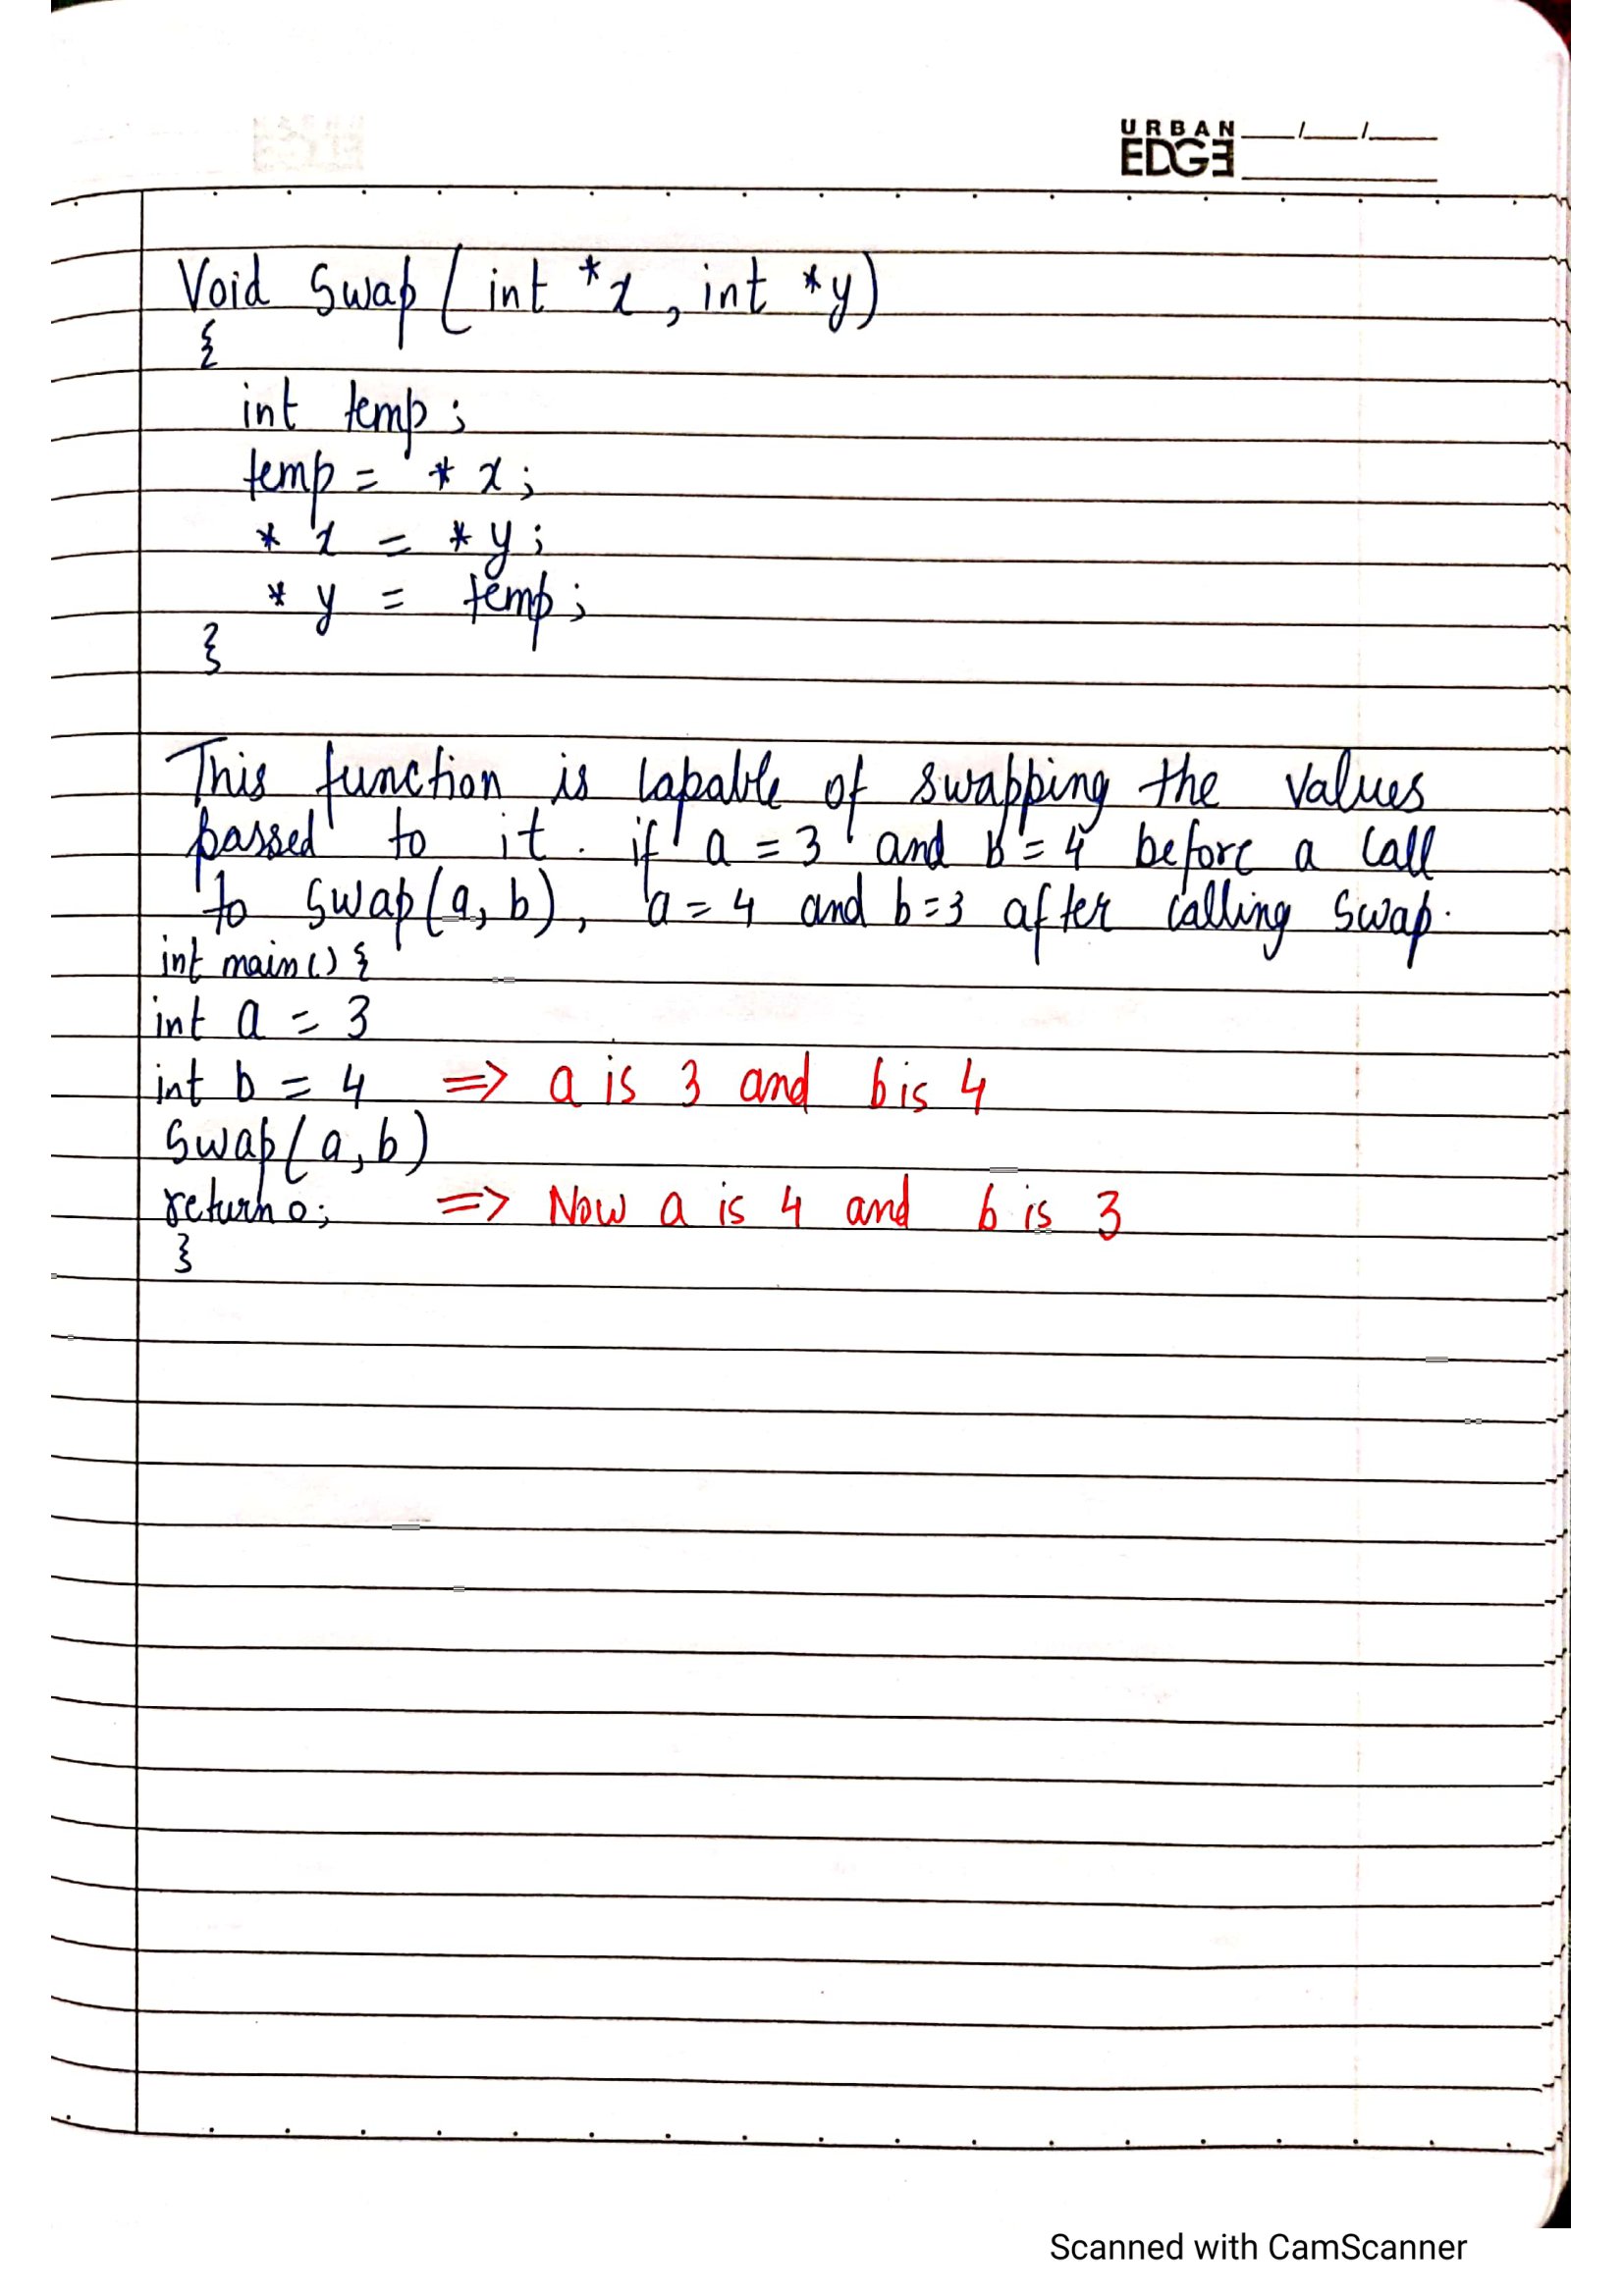 URBAN
EDGE
Void Swap (int *x, int *y)
{
int temp;
temp = *x;
*x = *y;
*y = temp;
}
This function is capable of swapping the values
passed to it. if a = 3 and b = 4 before a call
to swap(a, b), a = 4 and b=3 after calling swap.
int main() {
int a = 3
int b = 4 => a is 3 and b is 4
Swap(a, b)
return 0; => Now a is 4 and b is 3
}
Scanned with CamScanner